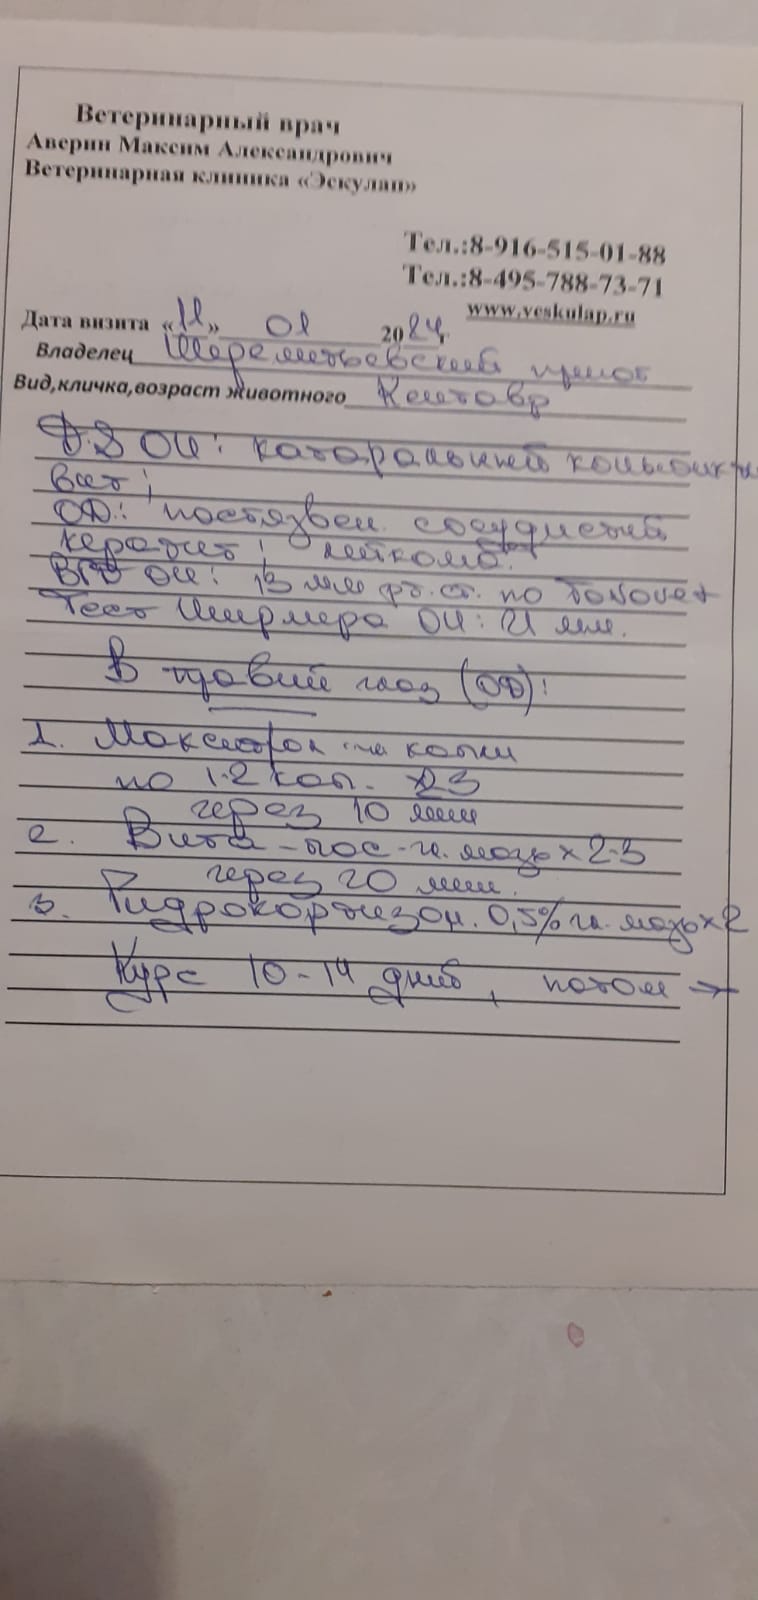 Ветеринарный врач
Аверин Максим Александрович
Ветеринарная клиника «Эскулап»
Тел.:8-916-515-01-88
Тел.:8-495-788-73-71
www.veskulap.ru
Дата визита «11» 01 2024г
Владелец Шереметьевский приют
Вид,кличка,возраст животного Кентавр
DS OU: катаральный конъюнкти
вит;
OD: постязвен. сосудистый
кератит;
ВГД OU: 13 мм рт. ст. по Tonovet
Тест Ширмера OU: 21 мм.
В правый глаз (OD):
1. гл капли
по 1-2 кап. x23
через 10 мин
2. Вита-пос гл. мазь x 2-3
через 20 мин.
3. Гидрокортизон. 0,5% гл. мазь x 2
Курс 10-14 дней, потом →